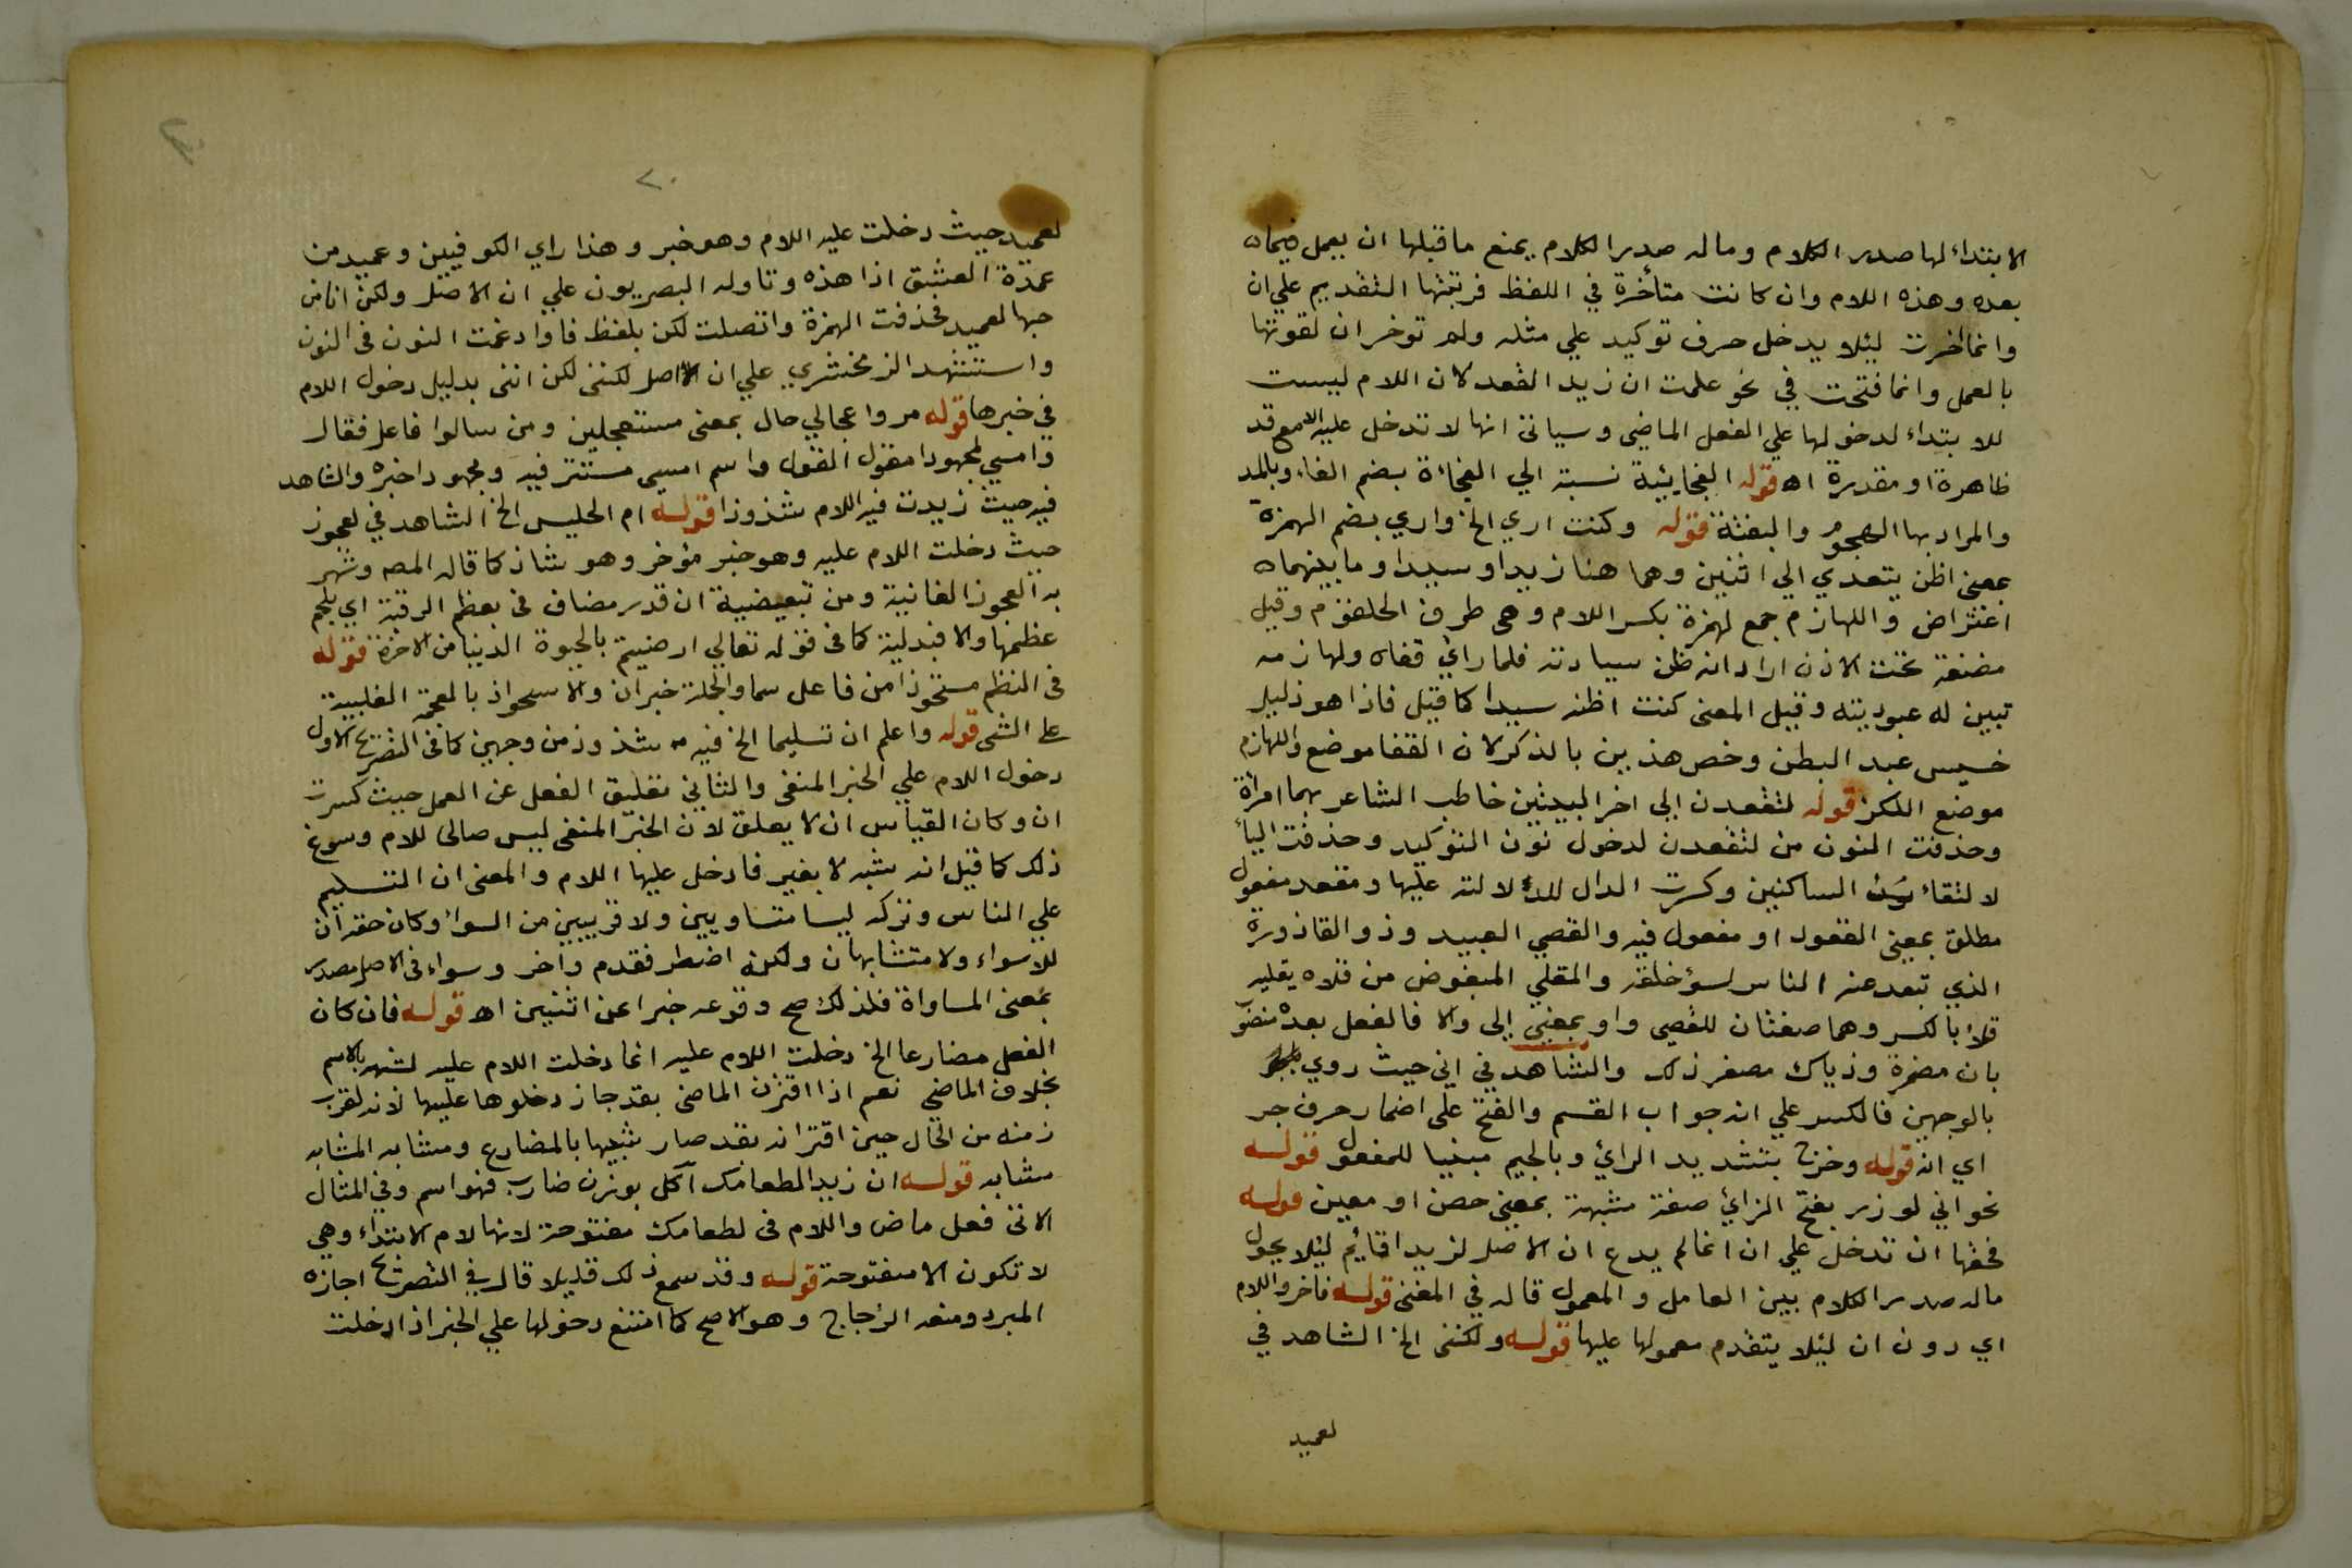 الابتداء لها صدر الكلام وماله صدر الكلام يمنع ما قبلها ان يعمل فيما
بعده وهذه اللام وان كانت متأخرة في اللفظ فرتبتها التقديم علي ان
وانما اخرت ليئلا يدخل حرف توكيد علي مثله ولم توخر ان لقوتها
بالعمل وانما فتحت في نحو علمت ان زيد الفعد لان اللام ليست
للابتداء لدخولها علي الفعل الماضي وسياتى انها لا تدخل عليه الا مع قد
ظاهرة او مقدرة اه قوله الفجايئية نسبة الي الفجاءة بضم الفاء وبالمد
والمراد بها الهجوم والبغتة قوله وكنت اري الخ واري بضم الهمزة
بمعنى اظن يتعدي الي اثنين وهما هنا زيدا وسيدا وما بينهما
اعتراض واللهازم جمع لهزمة بكسر اللام وهى طرف الحلقوم وقيل
مضغة تحت الاذن اراد انه ظن سيادته فلما راي قفاه ولهازمه
تبين له عبوديته وقيل المعنى كنت اظنه سيدا كما قيل فاذا هو ذليل
خسيس عبد البطن وخص هذين بالذكر لان القفا موضع واللهازم
موضع اللكز قوله لتقعدن الي اخر البيتين خاطب الشاعر بهما امرأة
وحذفت النون من لتقعدن لدخول نون التوكيد وحذفت اليأ
لالتقاء الساكنين وكسرت الدال للدلالة عليها ومقعد مفعول
مطلق بمعنى القعود او مفعول فيه والقصي البعيد وذو القاذورة
الذي تبعد عنه الناس لسؤ خلقه والمقلي المبغوض من قلاه يقليه
قلا بالكسر وهما صفتان للقصي واو بمعني إلى والا فالفعل بعده منصوب
بان مضمرة وذيالك مصغر ذلك والشاهد في اني حيث روي
بالوجهين فالكسر علي انه جواب القسم والفتح على اضمار حرف جر
اي انه قوله وخرج بتشديد الرائ وبالجيم مبنيا للمفعول قوله
نحو اني لوزر بفتح الزائ صفة مشبهة بمعنى حصن او معين قوله
فحقها ان تدخل علي ان انما لم يدع ان الاصل لزيدا قائم ليئلا يحول
ماله صدر الكلام بين العامل والمعمول قاله في المغنى قوله فاخروا اللام
اي دون ان ليئلا يتقدم معمولها عليها قوله ولكننى الخ الشاهد في
لعميد
٢٠
لعميد حيث دخلت عليه اللام وهو خبر وهذا راي الكوفيين وعميد من
عمدة العشق اذا هذه وتاوله البصريون علي ان الاصل ولكن انا من
حبها لعميد فحذفت الهمزة واتصلت لكن بلفظ فاوا دغمت النون فى النون
واستشهد الزمخشري علي ان الاصل لكننى لكن اننى بدليل دخول اللام
في خبرها قوله مروا عجالي حال بمعنى مستعجلين ومن سالوا فاعل فقال
وامسي لمجهودا مقول القول واسم امسي مستتر فيه ومجهودا خبره والشاهد
فيه حيث زيدت فيه اللام شذوذا قوله ام الحليس الخ الشاهد في لعجوز
حيث دخلت اللام عليه وهو خبر مؤخر وهو شاذ كما قاله المصه وشهر
به العجوز الفانية ومن تبعيضية ان قدر مضاف فى بعظم الرقبة اي بلحم
عظمها والا فبدلية كما فى قوله تعالي ارضيتم بالحيوة الدنيا من الاخرة قوله
فى النظم مستحوذا من فاعل سما والجملة خبر ان والاسحواذ بالمعجمة الغلبية
علي الشى قوله واعلم ان تسليما الخ فيه شذوذ من وجهين كما فى التصريح الاول
دخول اللام علي الخبر المنفى والثاني تعليق الفعل عن العمل حيث كسرت
ان وكان القياس ان لا يعلق لان الخبر المنفى ليس صالحا للام وسوغ
ذلك كما قيل انه شبه لا بغير فادخل عليها اللام والمعنى ان التسليم
علي الناس وتركه ليسا متساويين ولا قريبين من السواء وكان حقه ان
للاسواء ولا متشابهان ولكنه اضطر فقدم واخر وسواء فى الاصل مصدر
بمعنى المساواة فلذلك صح وقوعه خبرا عن اثنين اه قوله فان كان
الفعل مضارعا الخ دخلت اللام عليه انما دخلت اللام عليه لشبهه بالاسم
بخلاف الماضي نعم اذا اقترن الماضى بقد جاز دخلوها عليها لانه لقرب
زمنه من الحال حين اقترانه بقد صار شبيها بالمضارع ومشابه المشابه
مشابه قوله ان زيدا لطعامك اكل بوزن ضارب فهو اسم وفي المثال
الاتى فعل ماض واللام فى لطعامك مفتوحة لانها لام الابتداء وهي
لا تكون الا مفتوحة قوله وقد سمع ذلك قليلا قال في التصريح اجازه
المبرد ومنعه الزجاج وهو الاصح كما امتنع دخولها علي الخبر اذا دخلت